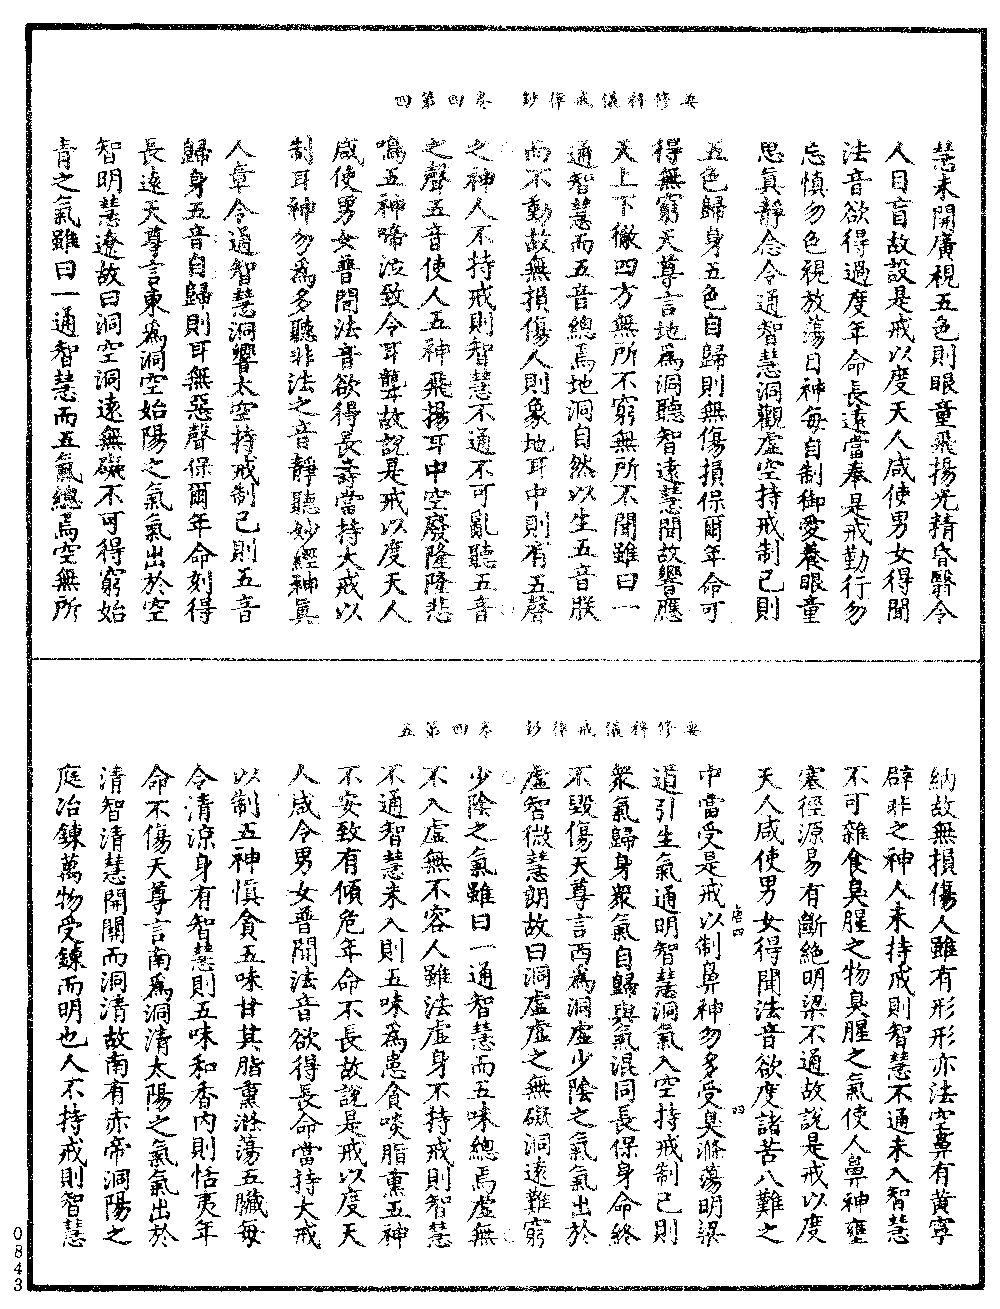 要修科儀戒律鈔　卷四第四
慧未開廣視五色則眼童飛揚光精昏翳令
人目盲故設是戒以度天人咸使男女得聞
法音欲得過度年命長遠當奉是戒勤行勿
忘慎勿色視放蕩目神每自制御愛養眼童
思真靜念令通智慧洞觀虛空持戒制己則
五色歸身五色自歸則無傷損保爾年命可
得無窮天尊言地為洞聽智遠慧聞故響應
天上下徹四方無所不窮無所不聞雖曰一
通智慧而五音總焉地洞自然以生五音朕
而不動故無損傷人則象地耳中則有五聲
之神人不持戒則智慧不通不可亂聽五音
之聲五音使人五神飛揚耳中空廢隆隆悲
鳴五神啼泣致令耳聾故說是戒以度天人
咸使男女普聞法音欲得長壽當持大戒以
制耳神勿為多聽非法之音靜聽妙經神真
人章令過智慧洞響太空持戒制己則五音
歸身五音自歸則耳無惡聲保爾年命刻得
長遠天尊言東為洞空始陽之氣氣出於空
智明慧遼故曰洞空洞遠無礙不可得窮始
青之氣雖曰一通智慧而五氣總焉空無所
要修科儀戒律鈔　卷四第五
納故無損傷人雖有形形亦法空鼻有黃寧
辟非之神人未持戒則智慧不通未入智慧
不可雜食臭腥之物臭腥之氣使人鼻神壅
塞徑源易有斷絕明梁不通故說是戒以度
天人咸使男女得聞法音欲度諸苦八難之
唐四　四
中當受是戒以制鼻神勿多受臭滌蕩明梁
道引生氣通明智慧洞氣入空持戒制己則
眾氣歸身眾氣自歸與氣混同長保身命終
不毀傷天尊言西為洞虛少陰之氣氣出於
虛智微慧朗故曰洞虛虛之無礙洞遠難窮
少陰之氣雖曰一通智慧而五味總焉虛無
不入虛無不容人雖法虛身不持戒則智慧
不通智慧未入則五味為患貪啖脂薰五神
不安致有傾危年命不長故說是戒以度天
人咸令男女普聞法音欲得長命當持大戒
以制五神慎貪五味甘其脂薰滌蕩五臟每
令清涼身有智慧則五味和香內則恬夷年
命不傷天尊言南為洞清太陽之氣氣出於
清智清慧開開而洞清故南有赤帝洞陽之
庭冶鍊萬物受鍊而明也人不持戒則智慧
0843